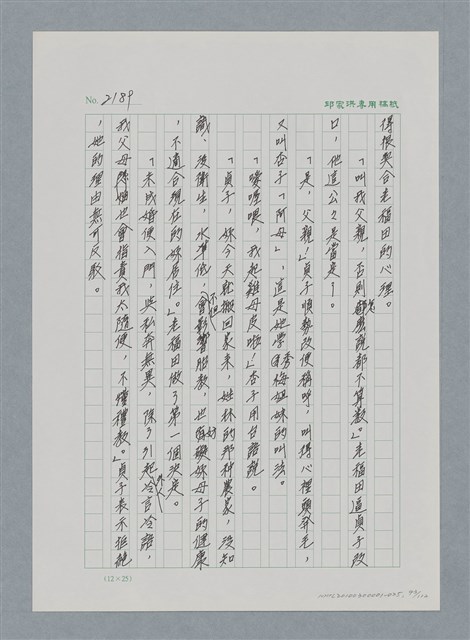 No. 2189
邱家洪專用稿紙
得很契合老稻田的心理。
「叫我父親，否則怎麼說都不算數。」老稻田逼貞子改
口，他這公公是當定了。
「是，父親。」貞子順勢改便稱呼，叫得心裡頭莽毛，
又叫杏子「阿母」，這是她學自秀梅姐妹的叫法。
「噯喔喂，我起雞母皮啦！」杏子用台語說。
「貞子，妳今天就搬回家來，姓林的那种農家，沒知
識、沒衛生，水準低，不但會影響胎教，也有礙妳母子的健康
，不適合現在的妳居住。」老稻田做了第一個決定。
「未成婚便入門，與私奔無異，除了引起外人冷言冷語，
我父母好也會指責我太隨便，不懂禮教。」貞子表示拒絕
，她的理由無可反駁。
(12×25)